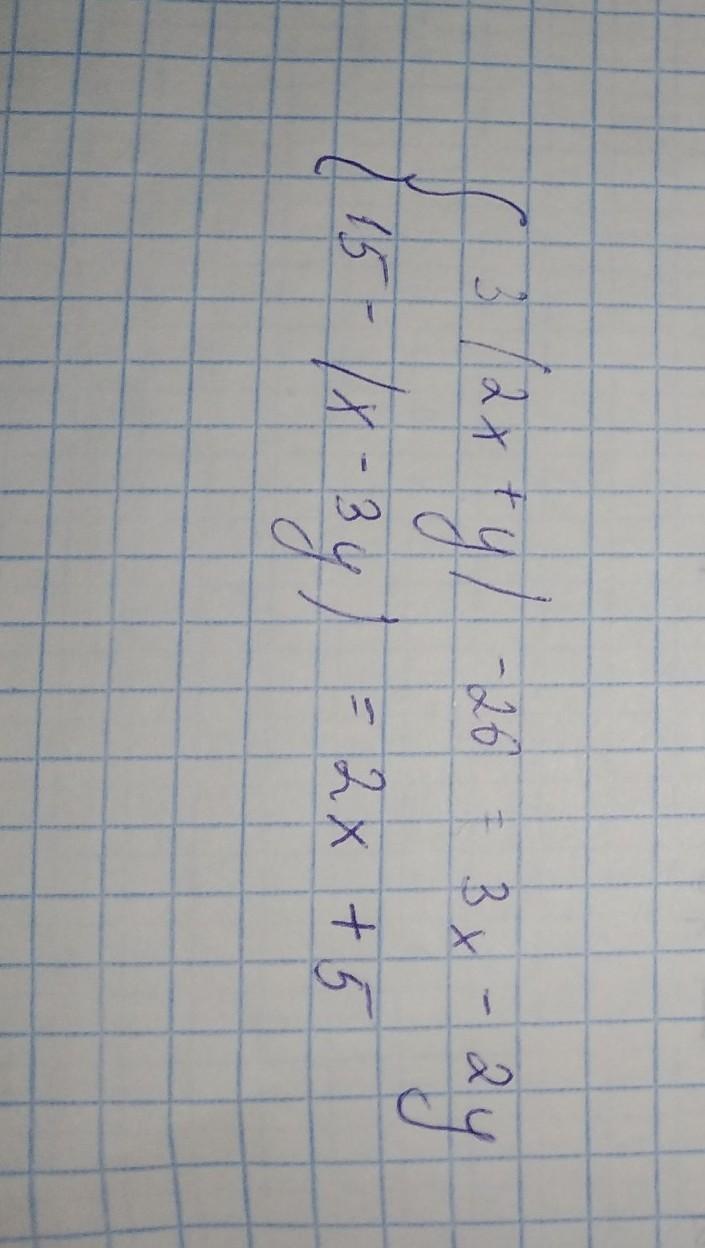 3(2x+y)-26 = 3x - 2y
15 - (x - 3y) = 2x + 5